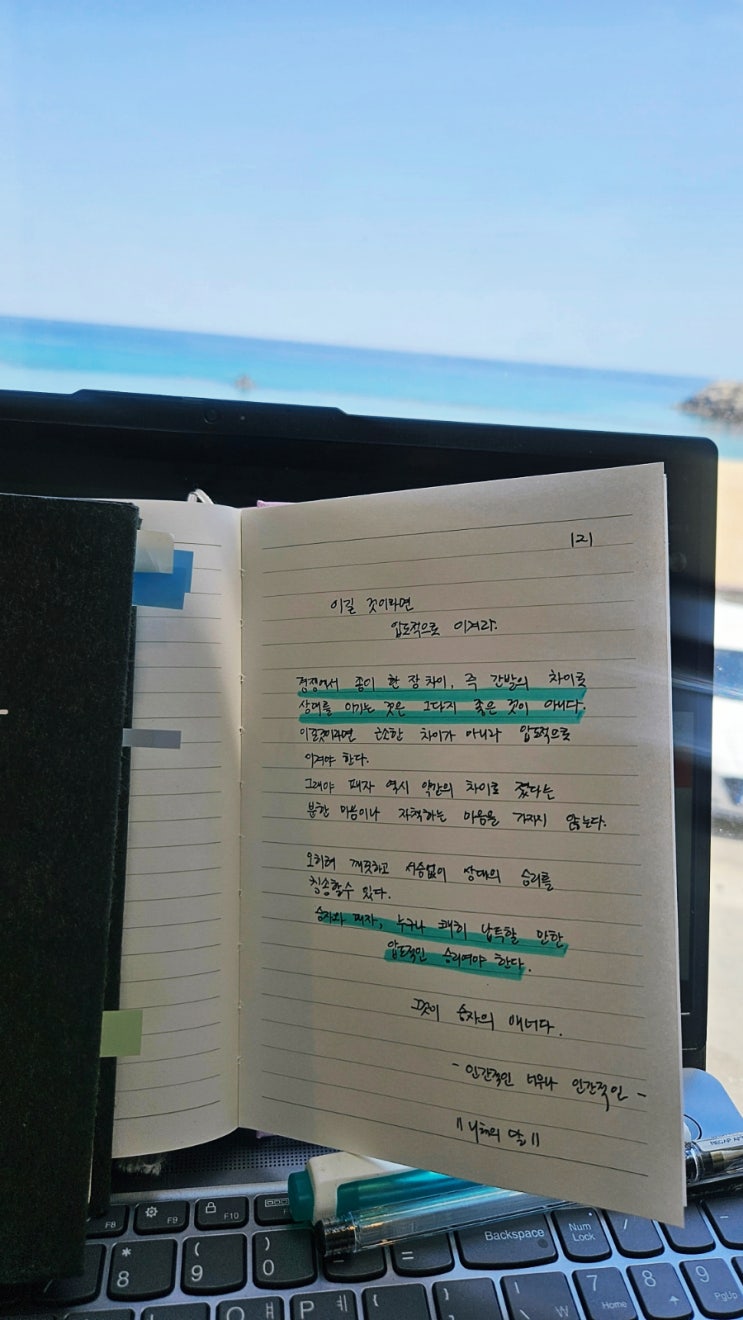 121
이길 것이라면
압도적으로 이겨라.
경쟁에서 종이 한 장 차이, 즉 간발의 차이로
상대를 이기는 것은 그다지 좋은 것이 아니다.
이길것이라면 근소한 차이가 아니라 압도적으로
이겨야 한다.
그래야 패자 역시 약간의 차이로 졌다는
분한 마음이나 자책하는 마음을 가지지 않는다.
오히려 깨끗하고 서슴없이 상대의 승리를
칭송할수 있다.
승자와 패자, 누구나 쾌히 납득할 만한
압도적인 승리여야 한다.
그것이 승자의 매너다.
- 인간적인 너무나 인간적인 -
"니체의 말"
F8
F9
F10
* 8
( 9
) 0
=
Backspace
Num Lock
/
ㅐ ㅒ
P ㅔ ㅖ
{ [
} ]
| \ ₩
7 Home
8
9 PgUp